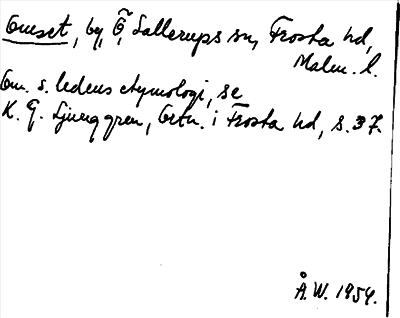 Omset, by, Ö, Sallerups sn, Frosta hd,
Malm. l.
Om s. ledens etymologi, se
K. G. Ljunggren, Ortn. i Frosta hd, s. 37.
Å. W. 1954.